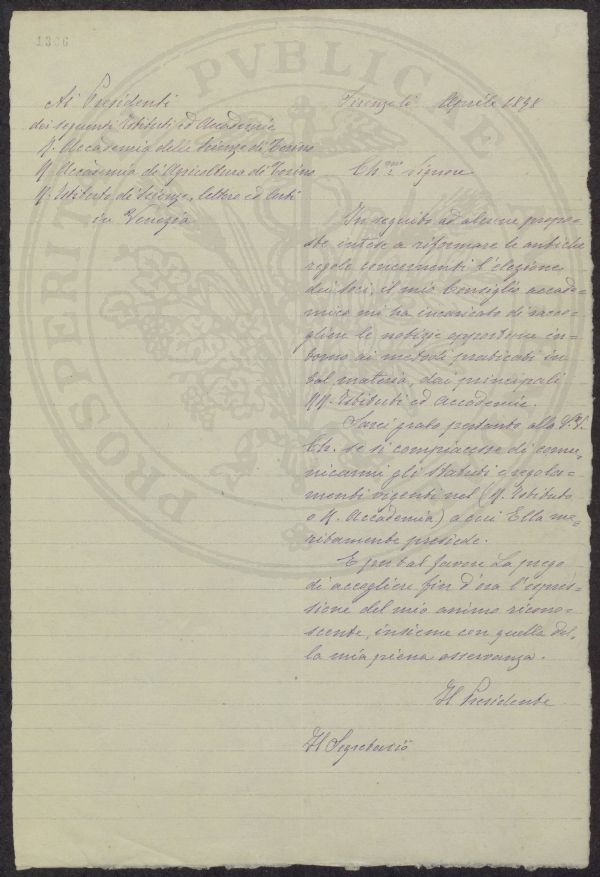 1336
Ai Presidenti
dei seguenti Istituti ed Accademie
R. Accademia delle Scienze di Torino
R. Accademia di Agricoltura di Torino
R. Istituto di Scienze, lettere ed Arti
in Venezia
Firenze li Aprile 1898
Ch.mo Signore
In seguito ad alcune propo=
ste intese a riformare le antiche
regole concernenti l'elezione
dei Soci, il mio Consiglio accade=
mico mi ha incaricato di racco=
gliere le notizie opportune in=
torno ai metodi praticati in
tal materia, dai principali
RR. Istituti ed Accademie.
Sarei grato pertanto alla S.V.
Ch. se si compiacesse di comu=
nicarmi gli Statuti e regola=
menti vigenti nel (R. Istituto
o R. Accademia) a cui Ella me=
ritamente presiede.
E per tal favore La prego
di accogliere fin d'ora l'espres=
sione del mio animo ricono=
scente, insieme con quella del=
la mia piena osservanza.
Il Presidente
Il Segretario
PROSPERITATI PVBLICAE